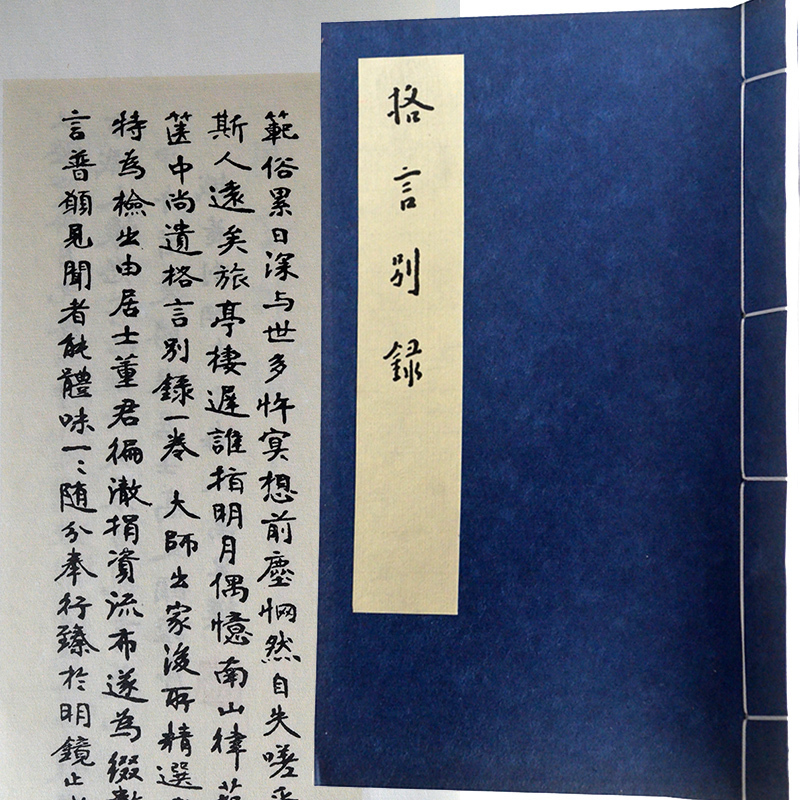 格言別録
範俗累日深与世多忤寞想前塵惘然自失嗟乎
斯人遠矣旅亭棲遲誰指明月偶憶南山律苑
篋中尚遺格言别錄一卷 大師出家後所精選
特為檢出由居士董君徧澈捐資流布遂為綴數
言普願見聞者能體味一二随分奉行臻於明鏡止